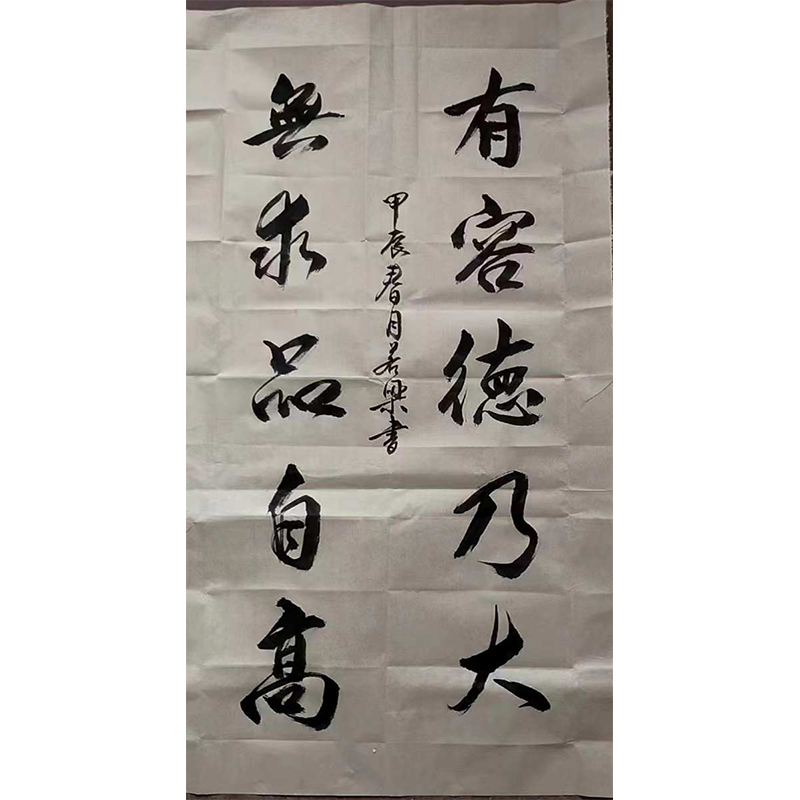 有容德乃大
無求品自高
甲辰春月若樂書